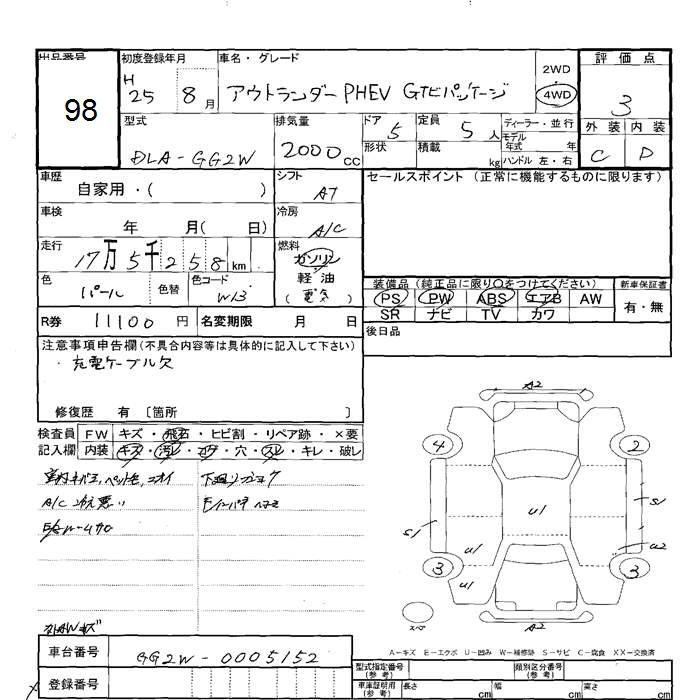 出品番号
98
初度登録年月
H 25 8 月
車名・グレード
アウトランダーPHEV Gナビパッケージ
2WD
4WD
評価点
3
外装 内装
C D
型式
DLA-GG2W
排気量
2000 cc
ドア 5
形状
定員 5 人
積載 kg
ディーラー・並行
モデル年式 年
ハンドル 左・右
車歴
自家用・( )
シフト
AT
セールスポイント (正常に機能するものに限ります)
車検
年 月( 日)
冷房
A/C
走行
17万5千258km
燃料
ガソリン
軽油
(電気)
色
パール
色替
色コード
W13
装備品(純正品に限り〇をつけてください)
新車保証書
PS PW ABS エアB AW
有・無
SR ナビ TV カワ
R券 11100 円
名変期限 月 日
後日品
注意事項申告欄(不具合内容等は具体的に記入して下さい)
・充電ケーブル欠
修復歴 有 〔箇所 〕
検査員記入欄
FW キズ・飛石・ヒビ割・リペア跡・×要
内装 キズ・汚レ・コゲ・穴・スレ・キレ・破レ
A/C 効悪い
A2
4
2
S1
U1
S1
U1
U2
3
3
U1
A2
スペア
A-キズ E-エクボ U-凹み W-補修跡 S-サビ C-腐食 XX-交換済
車台番号
GG2W-0005152
登録番号
型式指定番号(参考)
類別区分番号(参考)
車庫証明用(参考)
長さ cm
幅 cm
高さ cm